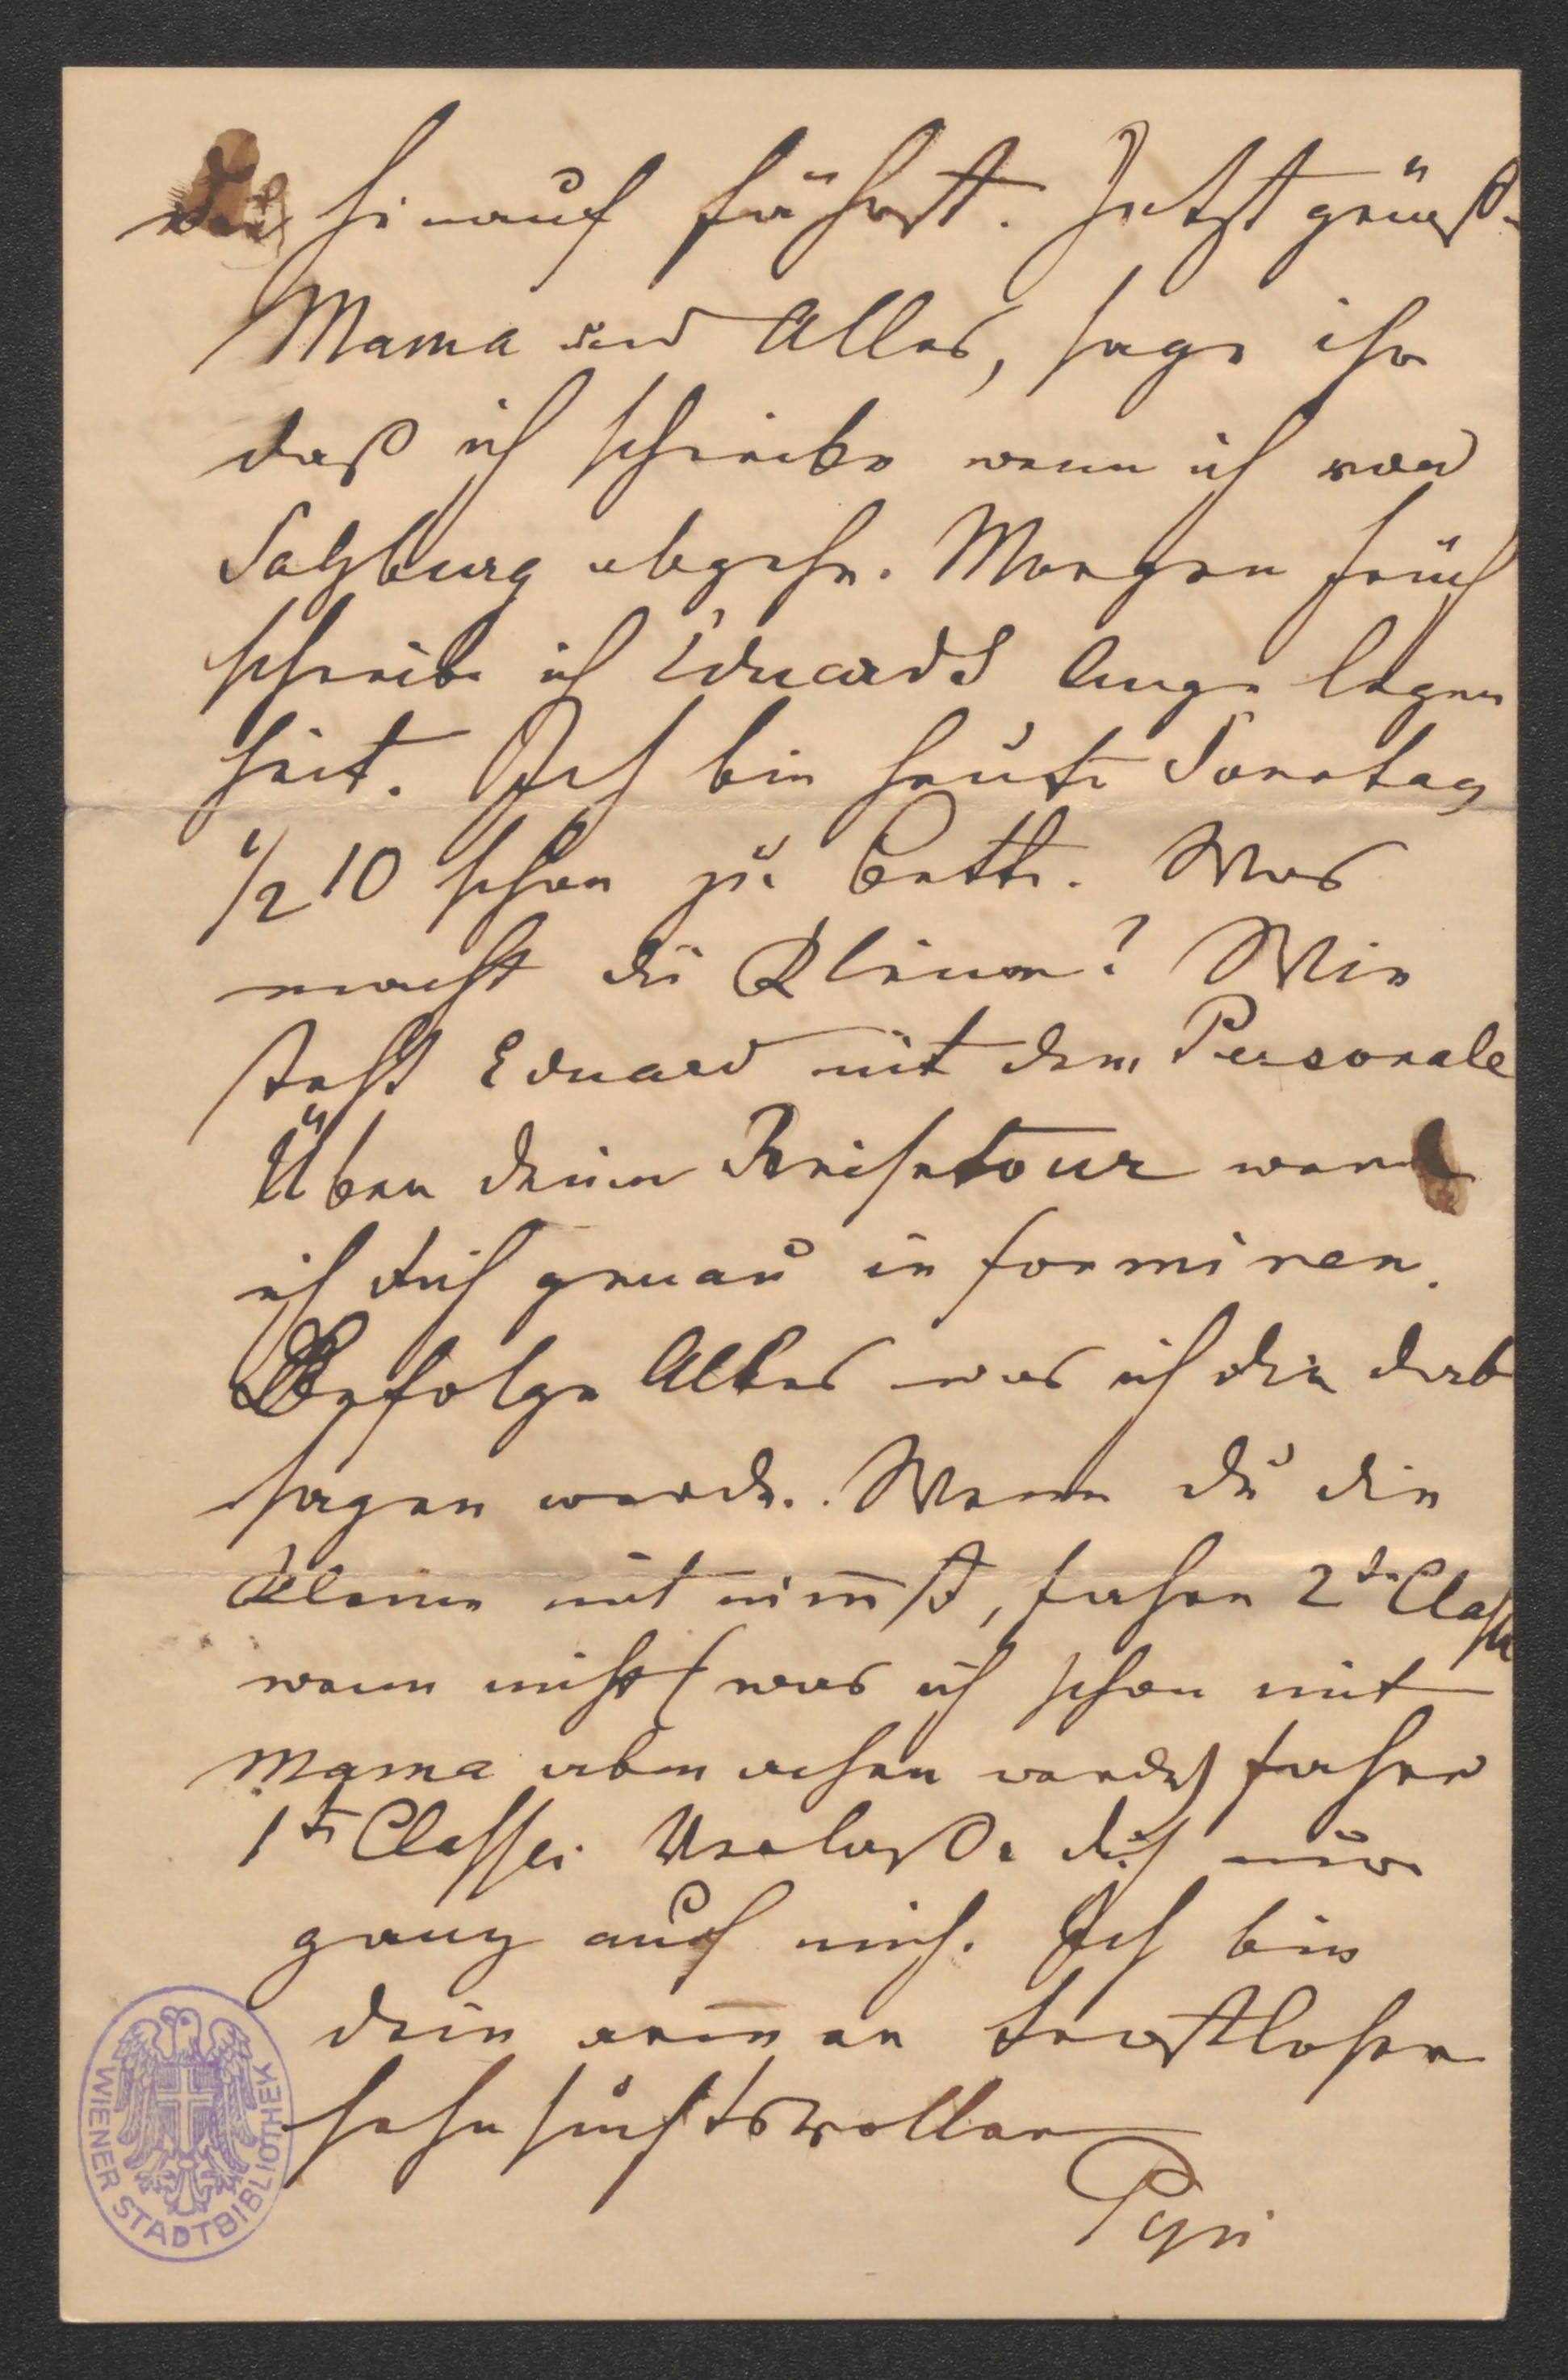 hinauf fährst. Jetzt grüße
Mama und Alles, sage ihr
daß ich schreibe wenn ich von
Salzburg abgehe. Morgen früh
schreibe ich Eduards Angelegen
heit. Ich bin heute Sonntag
1/2 10 schon zu Bette. Was
macht die Kleine? Wie
steht Eduard mit dem Personale
Über deine Reisetour werde
ich dich genau informiren.
Befolge Alles was ich dir da
sagen werde. Wenn du die
Kleine mit nim̅st, fahre 2te Classe
wenn nicht (was ich schon mit
Mama abmachen werde) fahre
1te Classe. Verlaße dich nur
ganz auf mich. Ich bin
dein armer trostloser
sehnsuchtsvoller
WIENER STADTBIBLIOTHEK